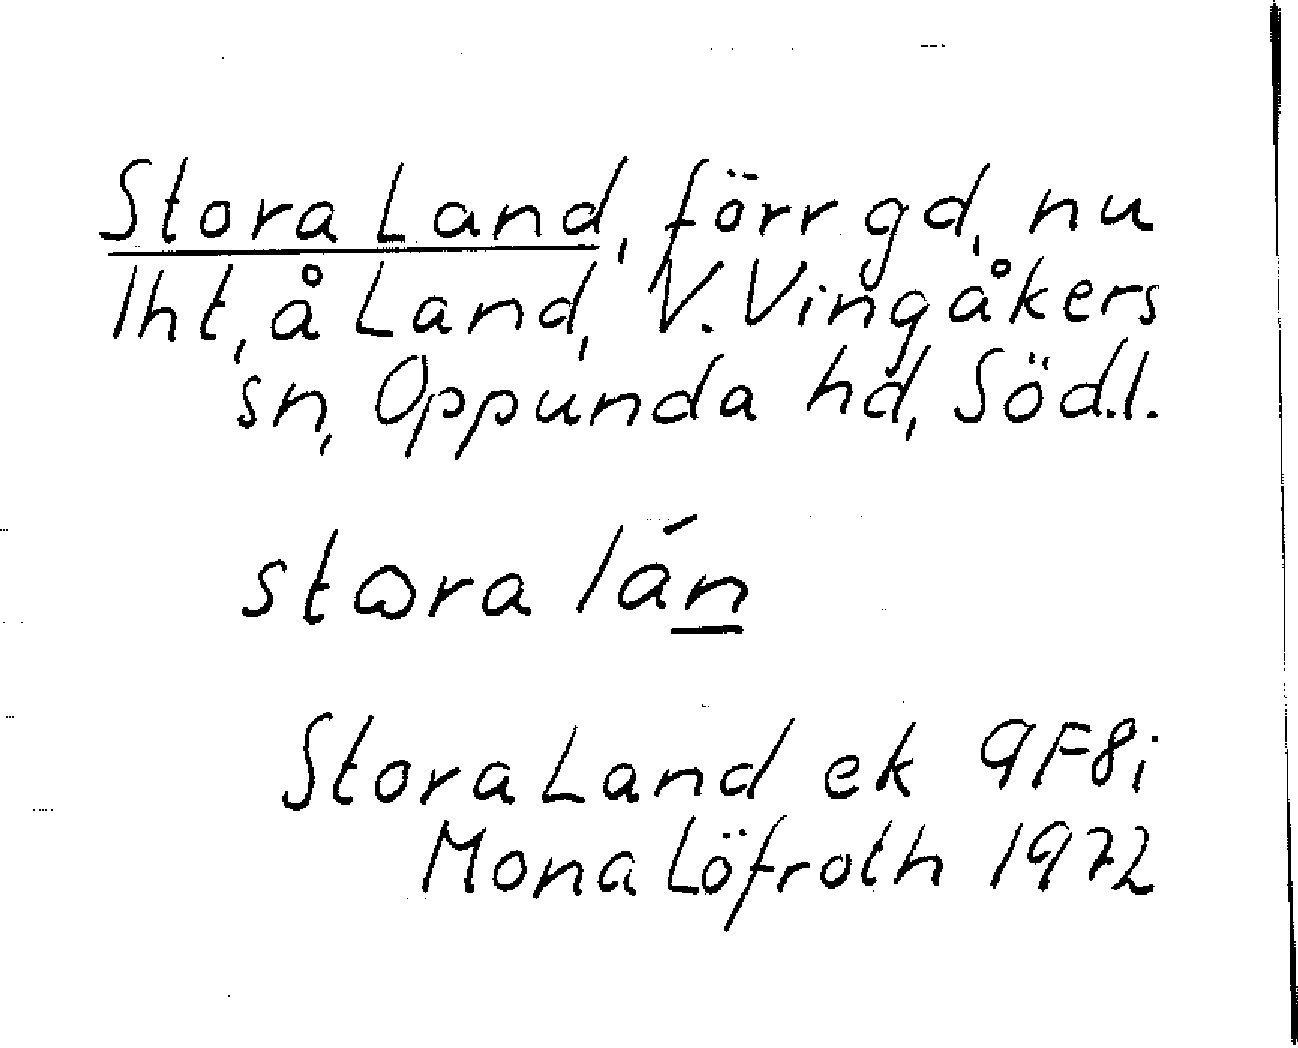 Stora Land, förr gd, nu
lht, å Land, V. Vingåkers
sn, Oppunda hd, Södl.
stɷra lán
Stora Land ek 9F8i
Mona Löfroth 1972